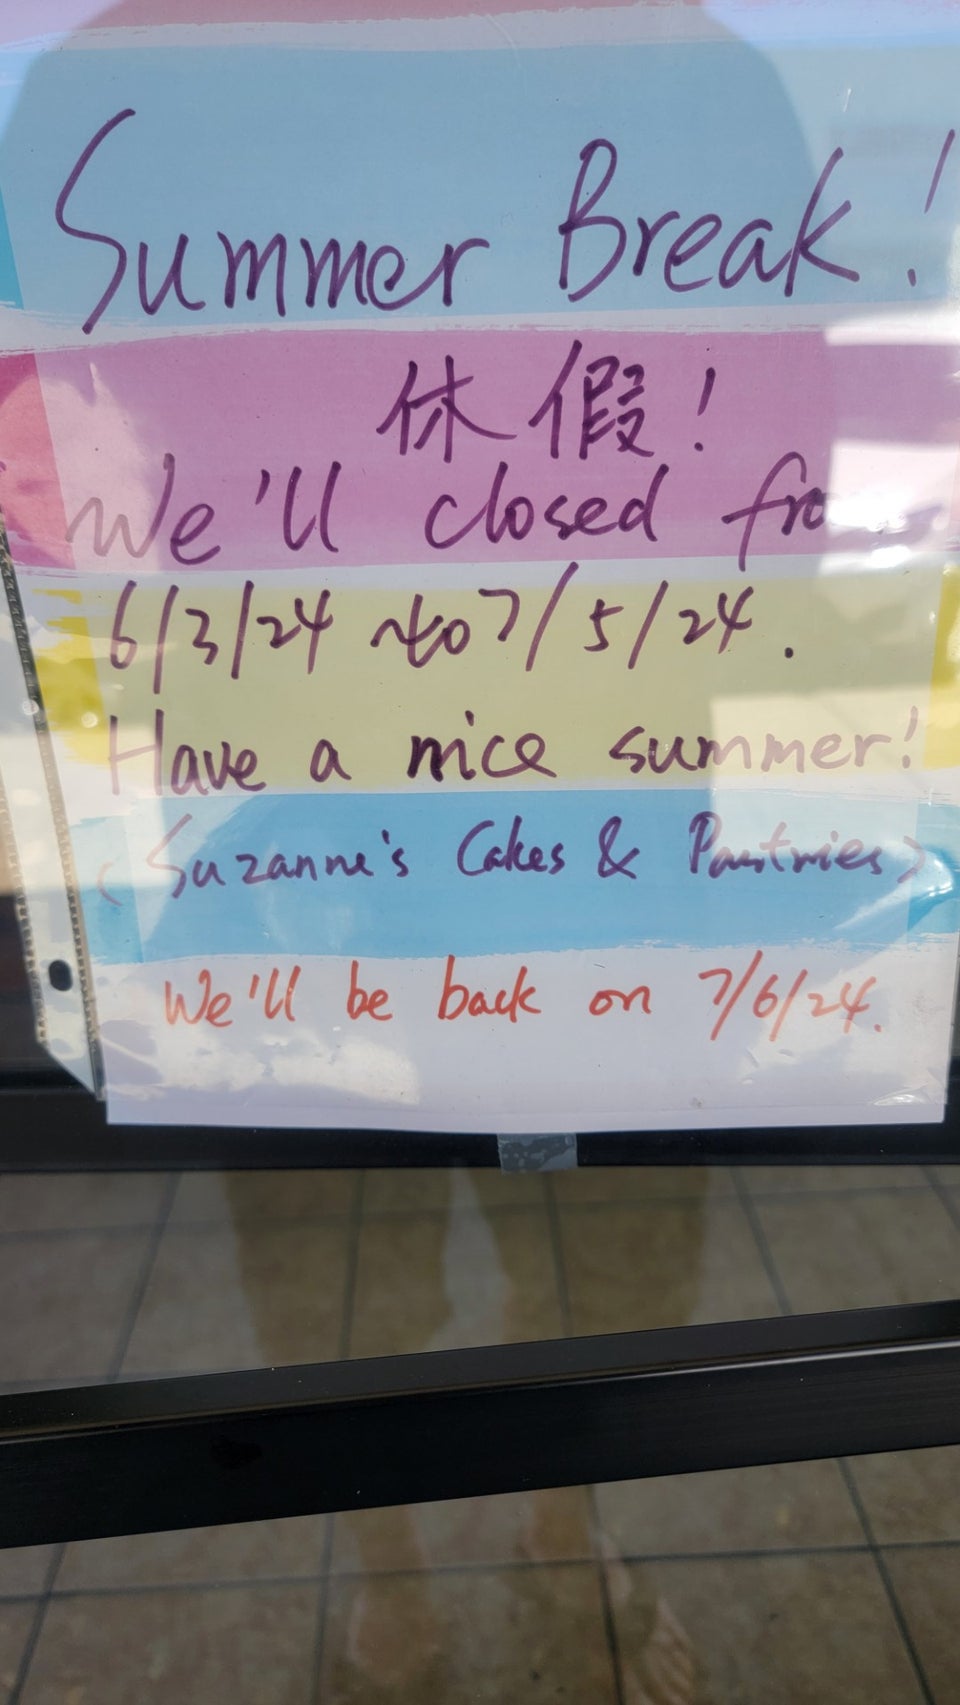 Summer Break!
休假!
We'll closed from
6/3/24 ~to 7/5/24.
Have a nice summer!
(Suzanne's Cakes & Pastries)
We'll be back on 7/6/24.